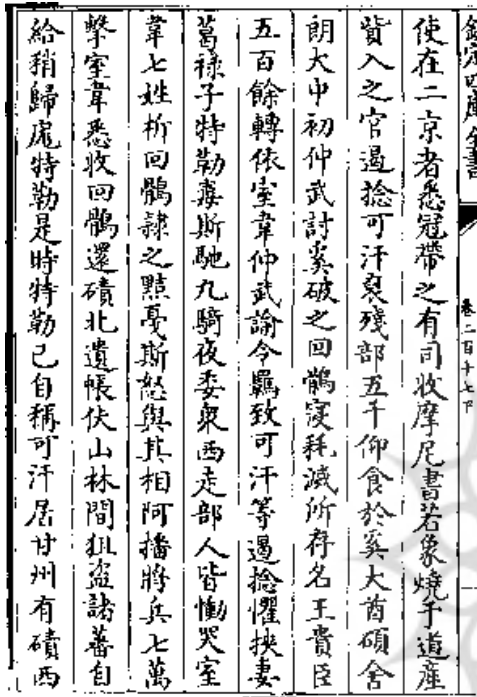 欽定四庫全書
卷二百十七下
使在二京者悉冠帶之有司收摩尼書若象燒于道産
貲入之官遏捻可汗裒殘部五千仰食於奚大酋碩舍
朗大中初仲武討奚破之回鶻寖耗滅所存名王貴臣
五百餘轉依室韋仲武諭令羈致可汗等遏捻懼挾妻
葛祿子特勒毒斯馳九騎夜委衆西走部人皆慟哭室
韋七姓析回鶻隸之黠戛斯怒與其相阿播將兵七萬
擊室韋悉收回鶻還磧北遺帳伏山林間狙盜諸蕃自
給稍歸厖特勒是時特勒已自稱可汗居甘州有磧西